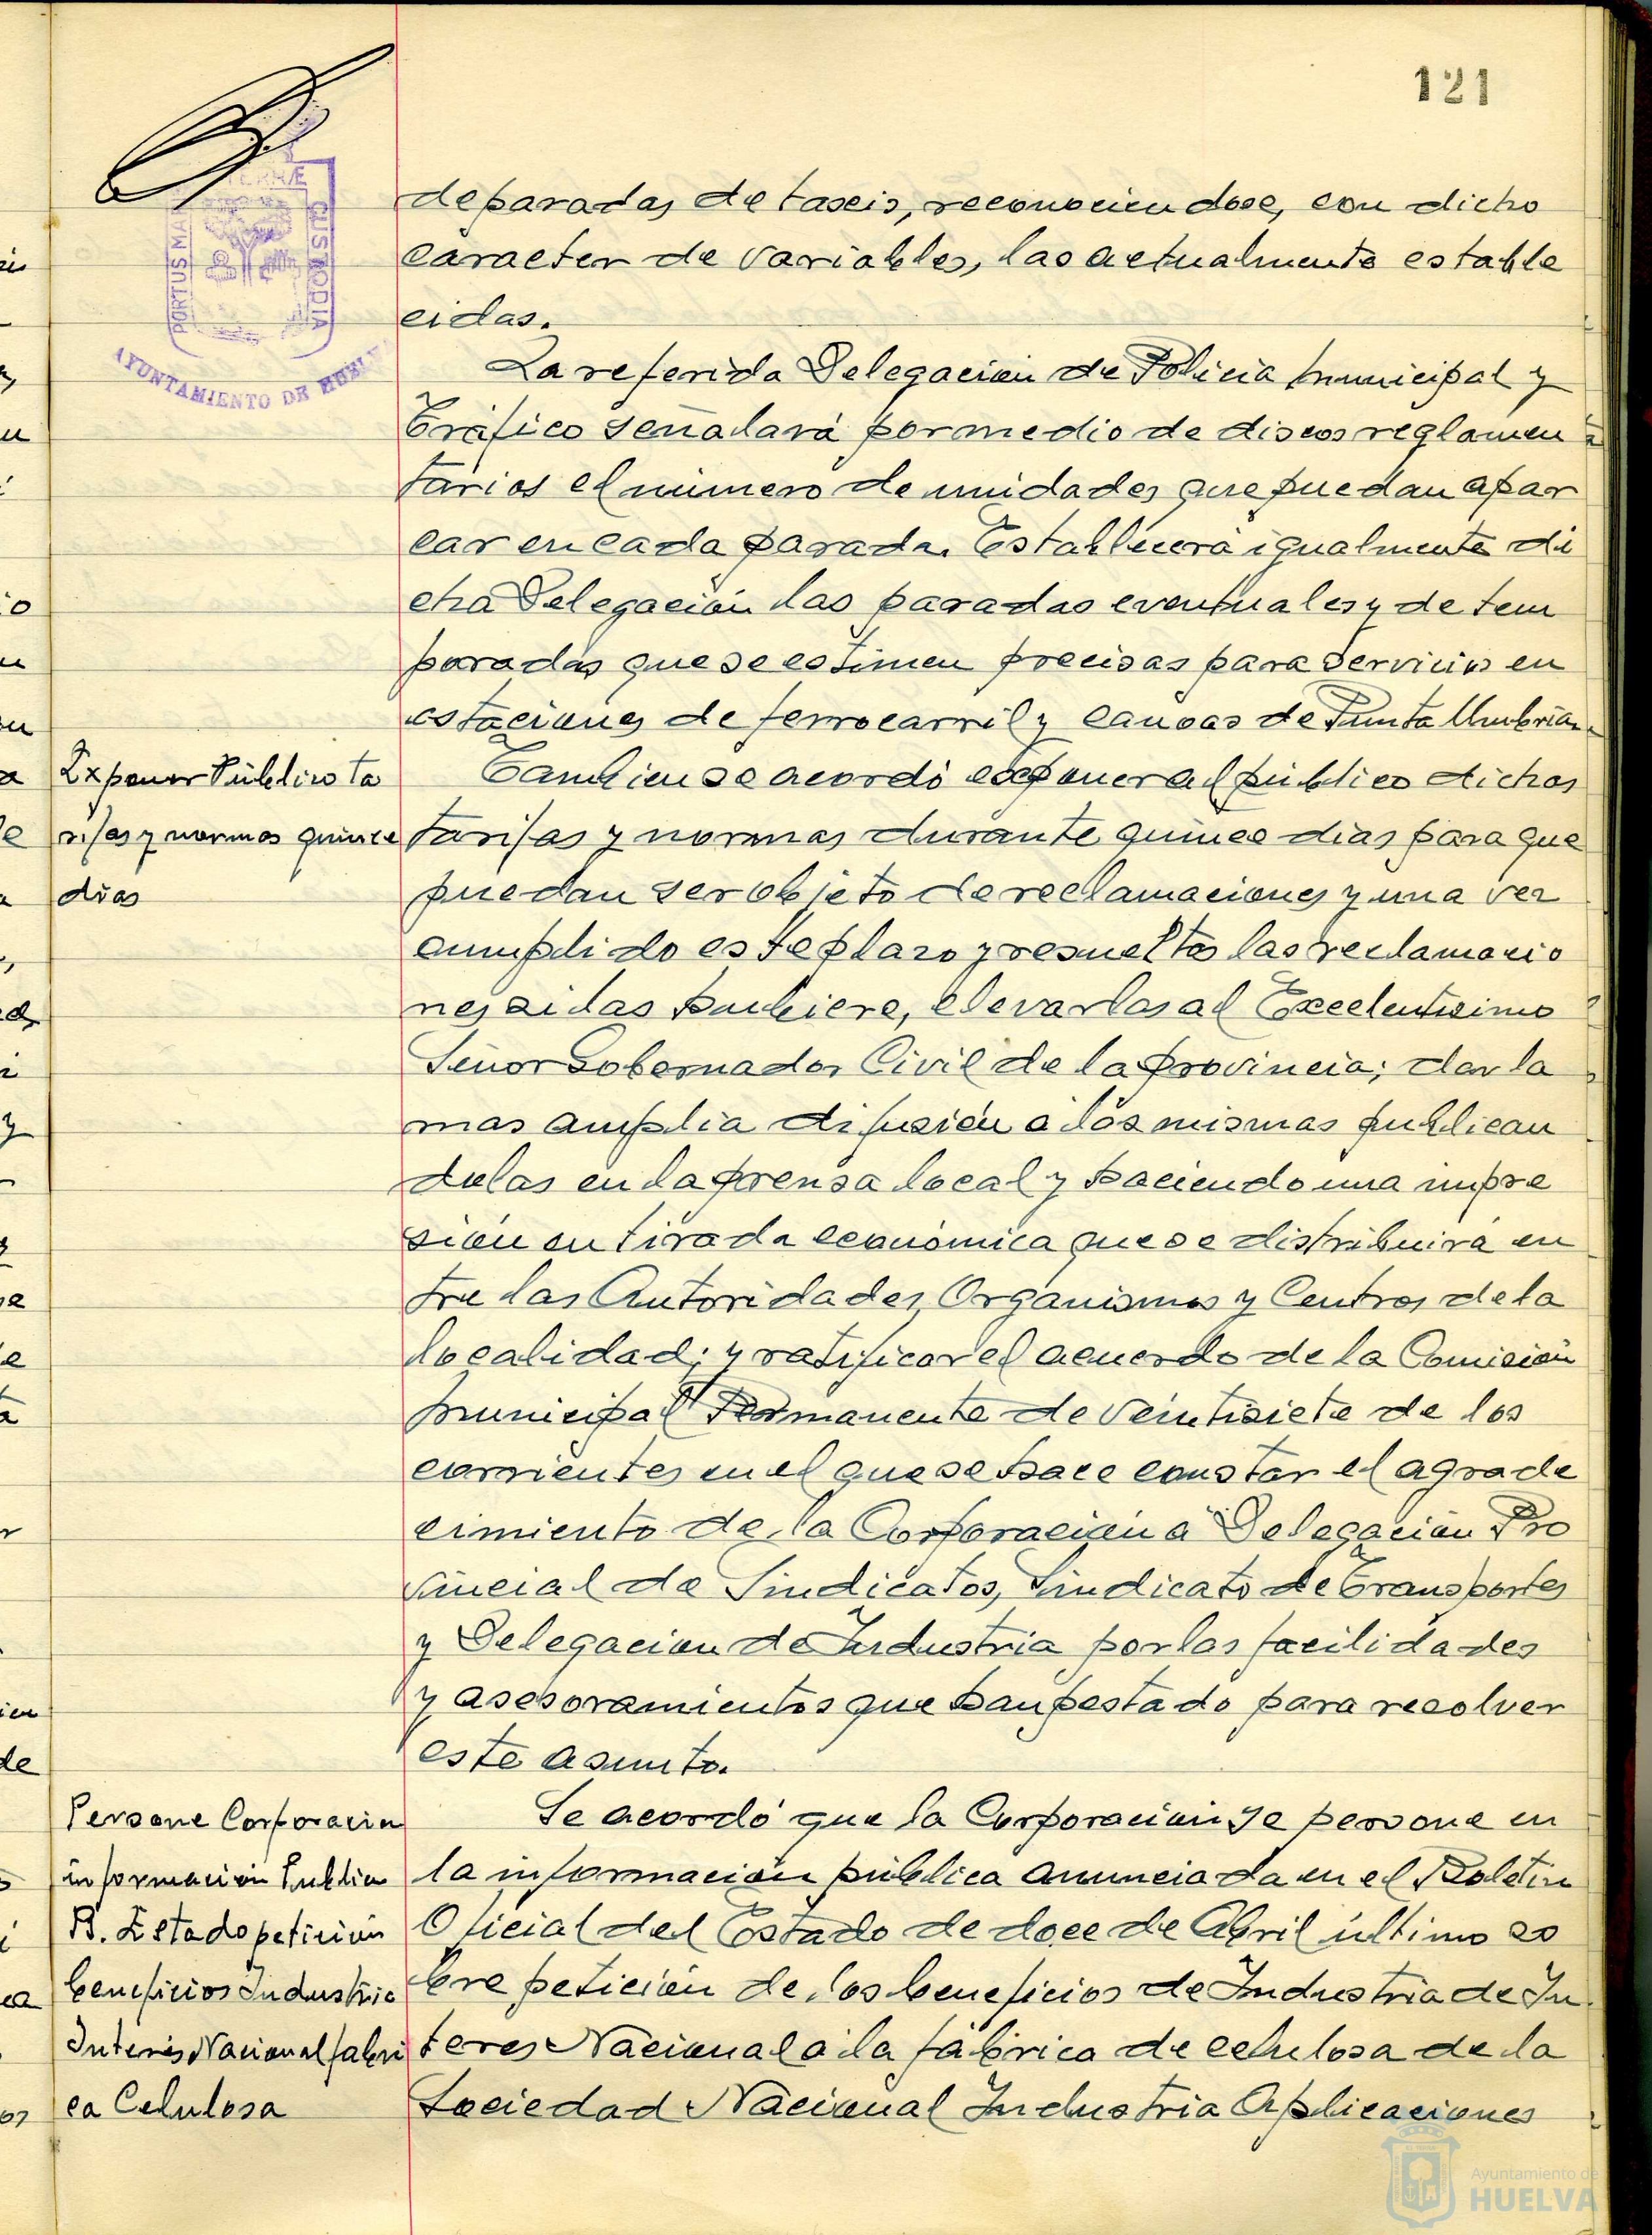 121
PORTUS MARIS ET TERRÆ CUSTODIA
AYUNTAMIENTO DE HUELVA
de paradas de taxeis, reconociendose, con dicho
caracter de variables, las actualmente estable
cidas.
La referida Delegación de Policia Municipal y
Tráfico señalará por medio de discos reglamen
tarios el número de unidades que puedan apar
car en cada parada. Establecerá igualmente di
cha Delegación las paradas eventuales y de tem
poradas que se estimen precisas para servicios en
estaciones de ferrocarril y canoas de Punta Umbria.
Exponer Público ta
rifas y normas quince
dias
Tambien se acordó exponer al público dichas
tarifas y normas durante quince dias para que
puedan ser objeto de reclamaciones y una vez
cumplido este plazo y resueltas las reclamacio
nes si las hubiere, elevarlas al Excelentisimo
Señor Gobernador Civil de la provincia; dar la
mas amplia difusión a las mismas publican
dolas en la prensa local y haciendo una impre
sión en tirada económica que se distribuirá en
tre las Autoridades, Organismos y Centros de la
localidad; y ratificar el acuerdo de la Comisión
Municipal Permanente de veintisiete de los
corrientes en el que se hace constar el agrade
cimiento de la Corporación a Delegación Pro
vincial de Sindicatos, Sindicato de Transportes
y Delegacion de Industria por las facilidades
y asesoramientos que han pestado para resolver
este asunto.
Persone Corporación
información Publica
B. Estado petición
beneficios Industria
Interés Nacional fabri
ca Celulosa
Se acordó que la Corporacion se persone en
la información pública anunciada en el Boletin
Oficial del Estado de doce de Abril último so
bre petición de los beneficios de Industria de In
teres Nacional a la fábrica de celulosa de la
Sociedad Nacional Industria Aplicaciones
Ayuntamiento de
HUELVA